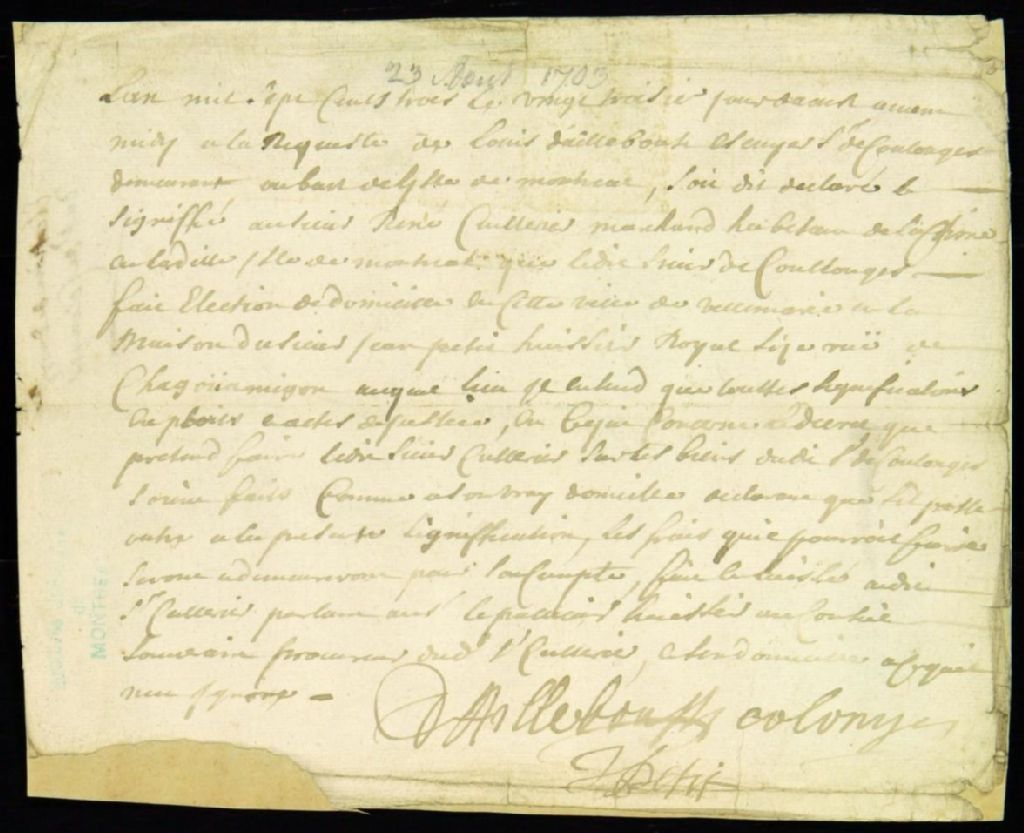 23 Aout 1703
Lan mil sept Cents trois le vingt troisie jour daoust avant
midy a la Requeste de Louis daillebout Escuyer Sr de Coulonges
demeurant au bout de lisle de montreal, soit dit declaré &
signiffié au sieur René Cullerier marchand habitant de la Chine
en ladite isle de montreal que ledit sieur de Coullonges
fait Election de domicille en cette ville de villemarie a la
Maison du sieur jean petit huissier Royal size rüe de
Chagouamigon auquel lieu il entend que touttes significations
Exploits & actes de justice, en ce qui concerne que
pretend faire ledit sieur Cullerier sur les biens dudit Sr de Coulonges
soient faits Comme a son vray domicille declarant que sil passe
outre a la presente signiffication, les frais quil pourroit faire
seront & demeureront pour son Compte, fait & laissé audit
Sr Cullerier parlant au Sr lepallieur huissier au Conseil
Souverain procureur dudt Sr Cullerier, en son domicille
D Ailleboust colonge
JPetit
MONTREAL